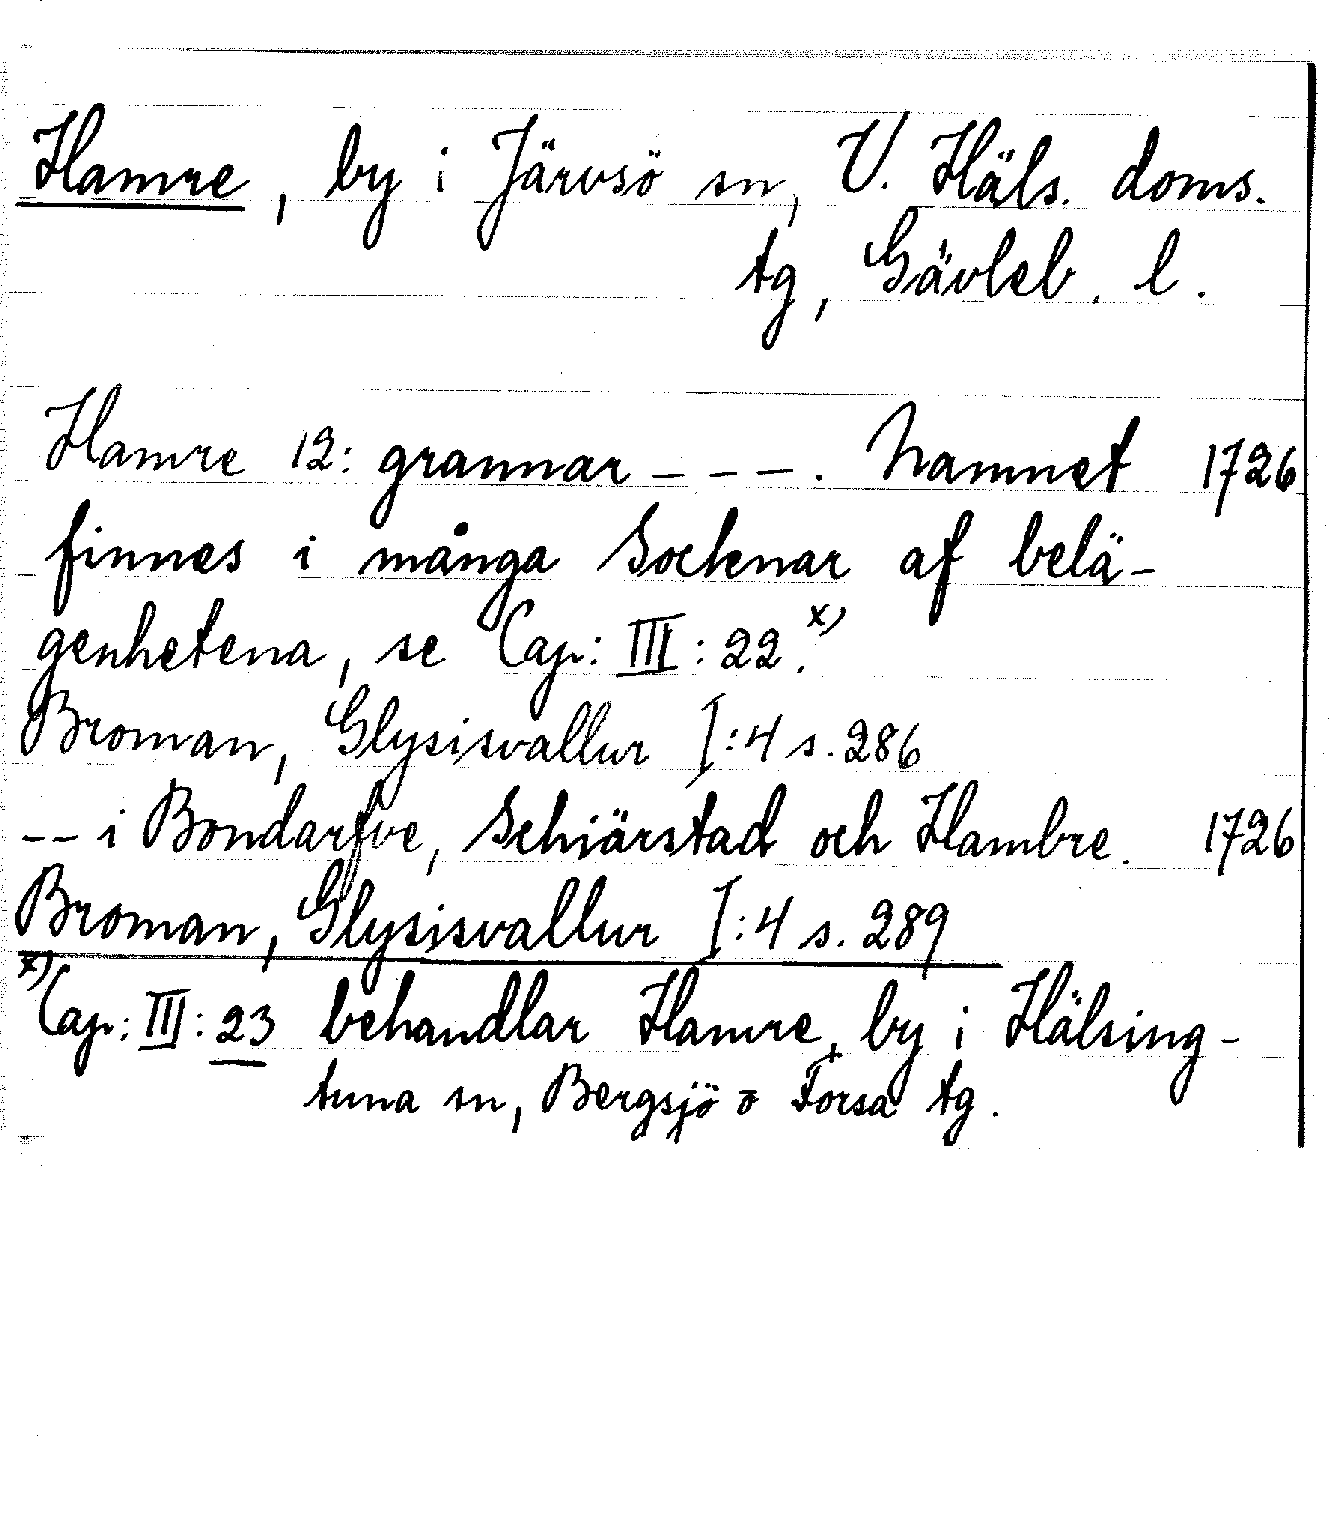 Hamre, by i Järvsö sn, V. Häls. doms.
tg, Gävleb. l.
Hamre 12: grannar - - - . Namnet 1726
finnes i många Socknar af belä-
genhetena, se Cap: III: 22.x)
Broman, Glysisvallur I:4 s. 286
-- i Bondarfve, Schiärstad och Hambre. 1726
Broman, Glysisvallur I:4 s. 289
x) Cap: III: 23 behandlar Hamre, by i Hälsing-
tuna sn, Bergsjö o Forsa tg.